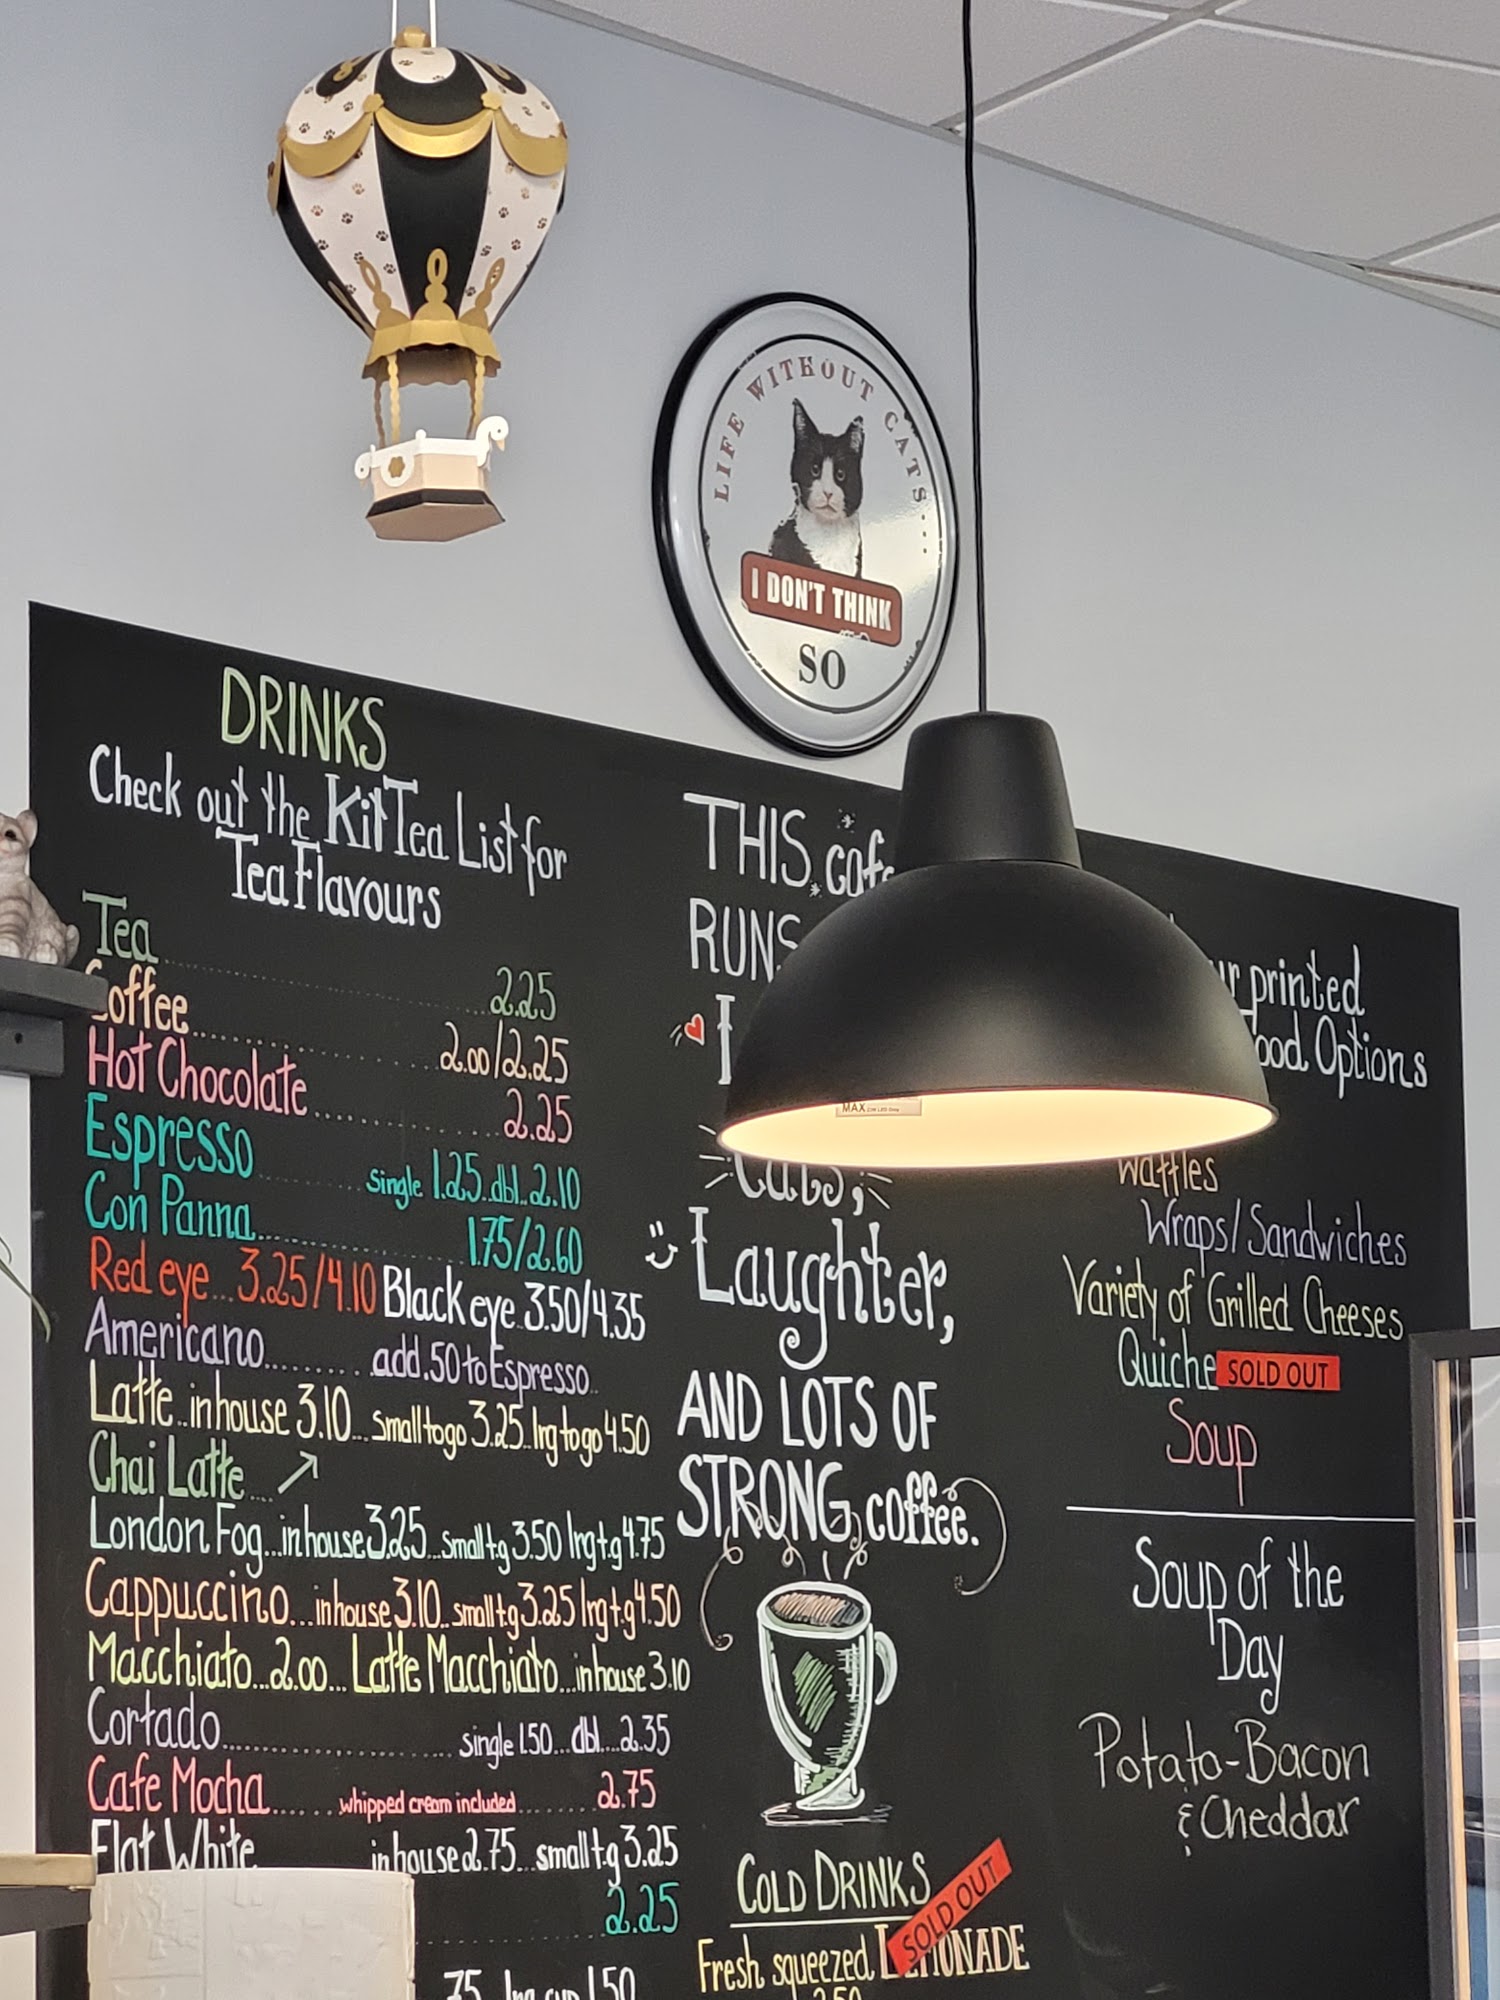 LIFE WITHOUT CATS....
I DON'T THINK
SO
DRINKS
Check out the KitTea List for
Tea Flavours
Tea 2.25
Coffee 2.00/2.25
Hot Chocolate 2.25
Espresso single 1.25..dbl..2.10
Con Panna 1.75/2.60
Red eye...3.25/4.10 Black eye 3.50/4.35
Americano add .50 to Espresso
Latte..in house 3.10...small to go 3.25..lrg to go 4.50
Chai Latte ↗
London Fog...in house 3.25...small t.g 3.50 lrg t.g 4.75
Cappuccino...in house 3.10..small t.g 3.25 lrg t.g 4.50
Macchiato...2.00...Latte Macchiato...in house 3.10
Cortado single 1.50...dbl...2.35
Cafe Mocha whipped cream included 2.75
Flat White in house 2.75...small t.g 3.25
2.25
.75 lrg cup 1.50
THIS
RUNS
MAX
Cats,
Laughter,
AND LOTS OF
STRONG coffee.
COLD DRINKS
SOLD OUT
Fresh squeezed LEMONADE
printed
Options
Waffles
Wraps/Sandwiches
Variety of Grilled Cheeses
Quiche SOLD OUT
Soup
Soup of the
Day
Potato-Bacon
& Cheddar